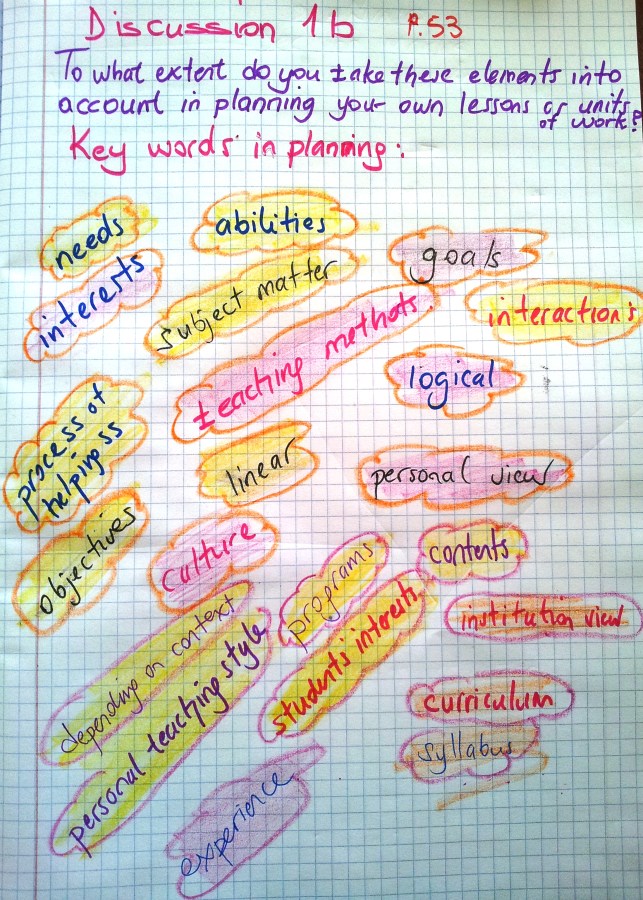 Discussion 1b P.53
To what extent do you take these elements into
account in planning your own lessons or units
of work?
Key words in planning:
needs
abilities
goals
interests
subject matter
interactions
teaching methots.
logical
process of
helping ss
linear
personal view
objectives
culture
programs
contents
depending on context
students' interests
institution view
personal teaching style
curriculum
syllabus
experience